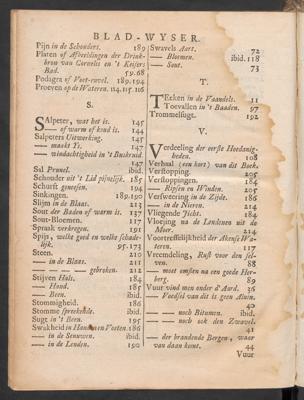 BLAD-WYSER.
Pijn in de Schouders. 189
Platen of Afbeeldingen der Drink-
bron van Cornelis en 't Keisers
Bad. 59.68
Podagra of Voet-euvel. 189.194
Proeven op de Wateren. 114.115.116
S.
Salpeter, wat het is. 145
— of warm of koud is. 144
Salpeters Uitwerking. 145
— maakt Ys. 147
— windachtigheid in 't Buskruid.
147
Sal Prunel. ibid.
Schouder uit 't Lid pijnelijk. 185
Schurft genesen. 194
Sinkingen. 189.190
Slijm in de Blaas. 213
Sout der Baden of warm is. 137
Sout-Bloemen. 117
Spraak verkregen. 191
Spijs, welke goed en welke schade-
lijk. 95.173
Steen. 210
— in de Blaas.
— — — gebroken. 212
Stijven Hals. 184
— Hand. 187
— Been. ibid.
Stommigheid. 186
Stomme sprekende. ibid.
Sugt in 't Been. 195
Swakheid in Handen en Voeten. 186
— in de Senuwen. ibid.
— in de Lenden. 190
Swavels Aart. 72
— Bloemen. ibid. 118
— Sout. 73
T.
Tekken in de Vaandels. 11
Toevallen in 't Baaden. 97
Trommelsugt. 192
V.
Verdeeling der eerste Hoedanig-
heden. 108
Verhaal (een kort) van dit Boek.
Verstopping. 205
Verstoppingen. 184
— Ripsen en Winden. 205
Versweering in de Zijde. 186
— in de Nieren. 214
Vliegende Jicht. 184
Vloejing na de Lendenen uit de
Moer. 214
Voortreffelijkheid der Akense Wa-
teren. 117
Vreemdeling, Rust voor den sel-
ven. 88
— moet omsien na een goede Her-
berg. 89
Vuur vind men onder d'Aard. 36
— Voedsel van dit is geen Aluin.
40
— — noch Bitumen. ibid.
— — noch ook den Zwavel.
41
— der brandende Bergen, waar
van daan komt. 44
Vuur